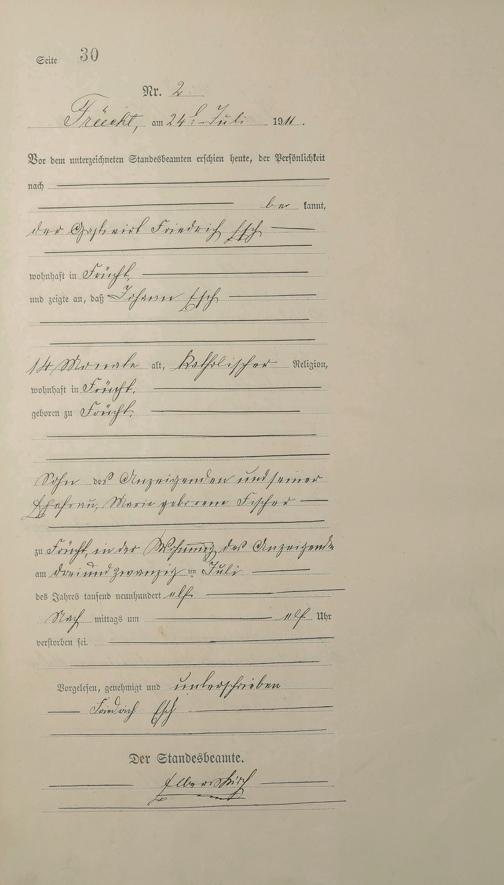 Seite 30
Nr. 2
Früeht, am 24t Juli 1911.
Vor dem unterzeichneten Standesbeamten erschien heute, der Persönlichkeit
nach
be kannt,
der Gastwirt Friedrich Esch
wohnhaft in Früeht,
und zeigte an, daß Johann Esch
14 Monate alt, katholischer Religion,
wohnhaft in Früeht,
geboren zu Früeht,
Sohn des Anzeigenden und seiner
Ehefrau, Marie geborene Fischer
zu Früeht, in der Wohnung des Anzeigende
am dreiundzwanzig im Juli
des Jahres tausend neunhundert elf
Nach mittags um elf Uhr
verstorben sei.
Vorgelesen, genehmigt und unterschrieben
Friedrich Esch
Der Standesbeamte.